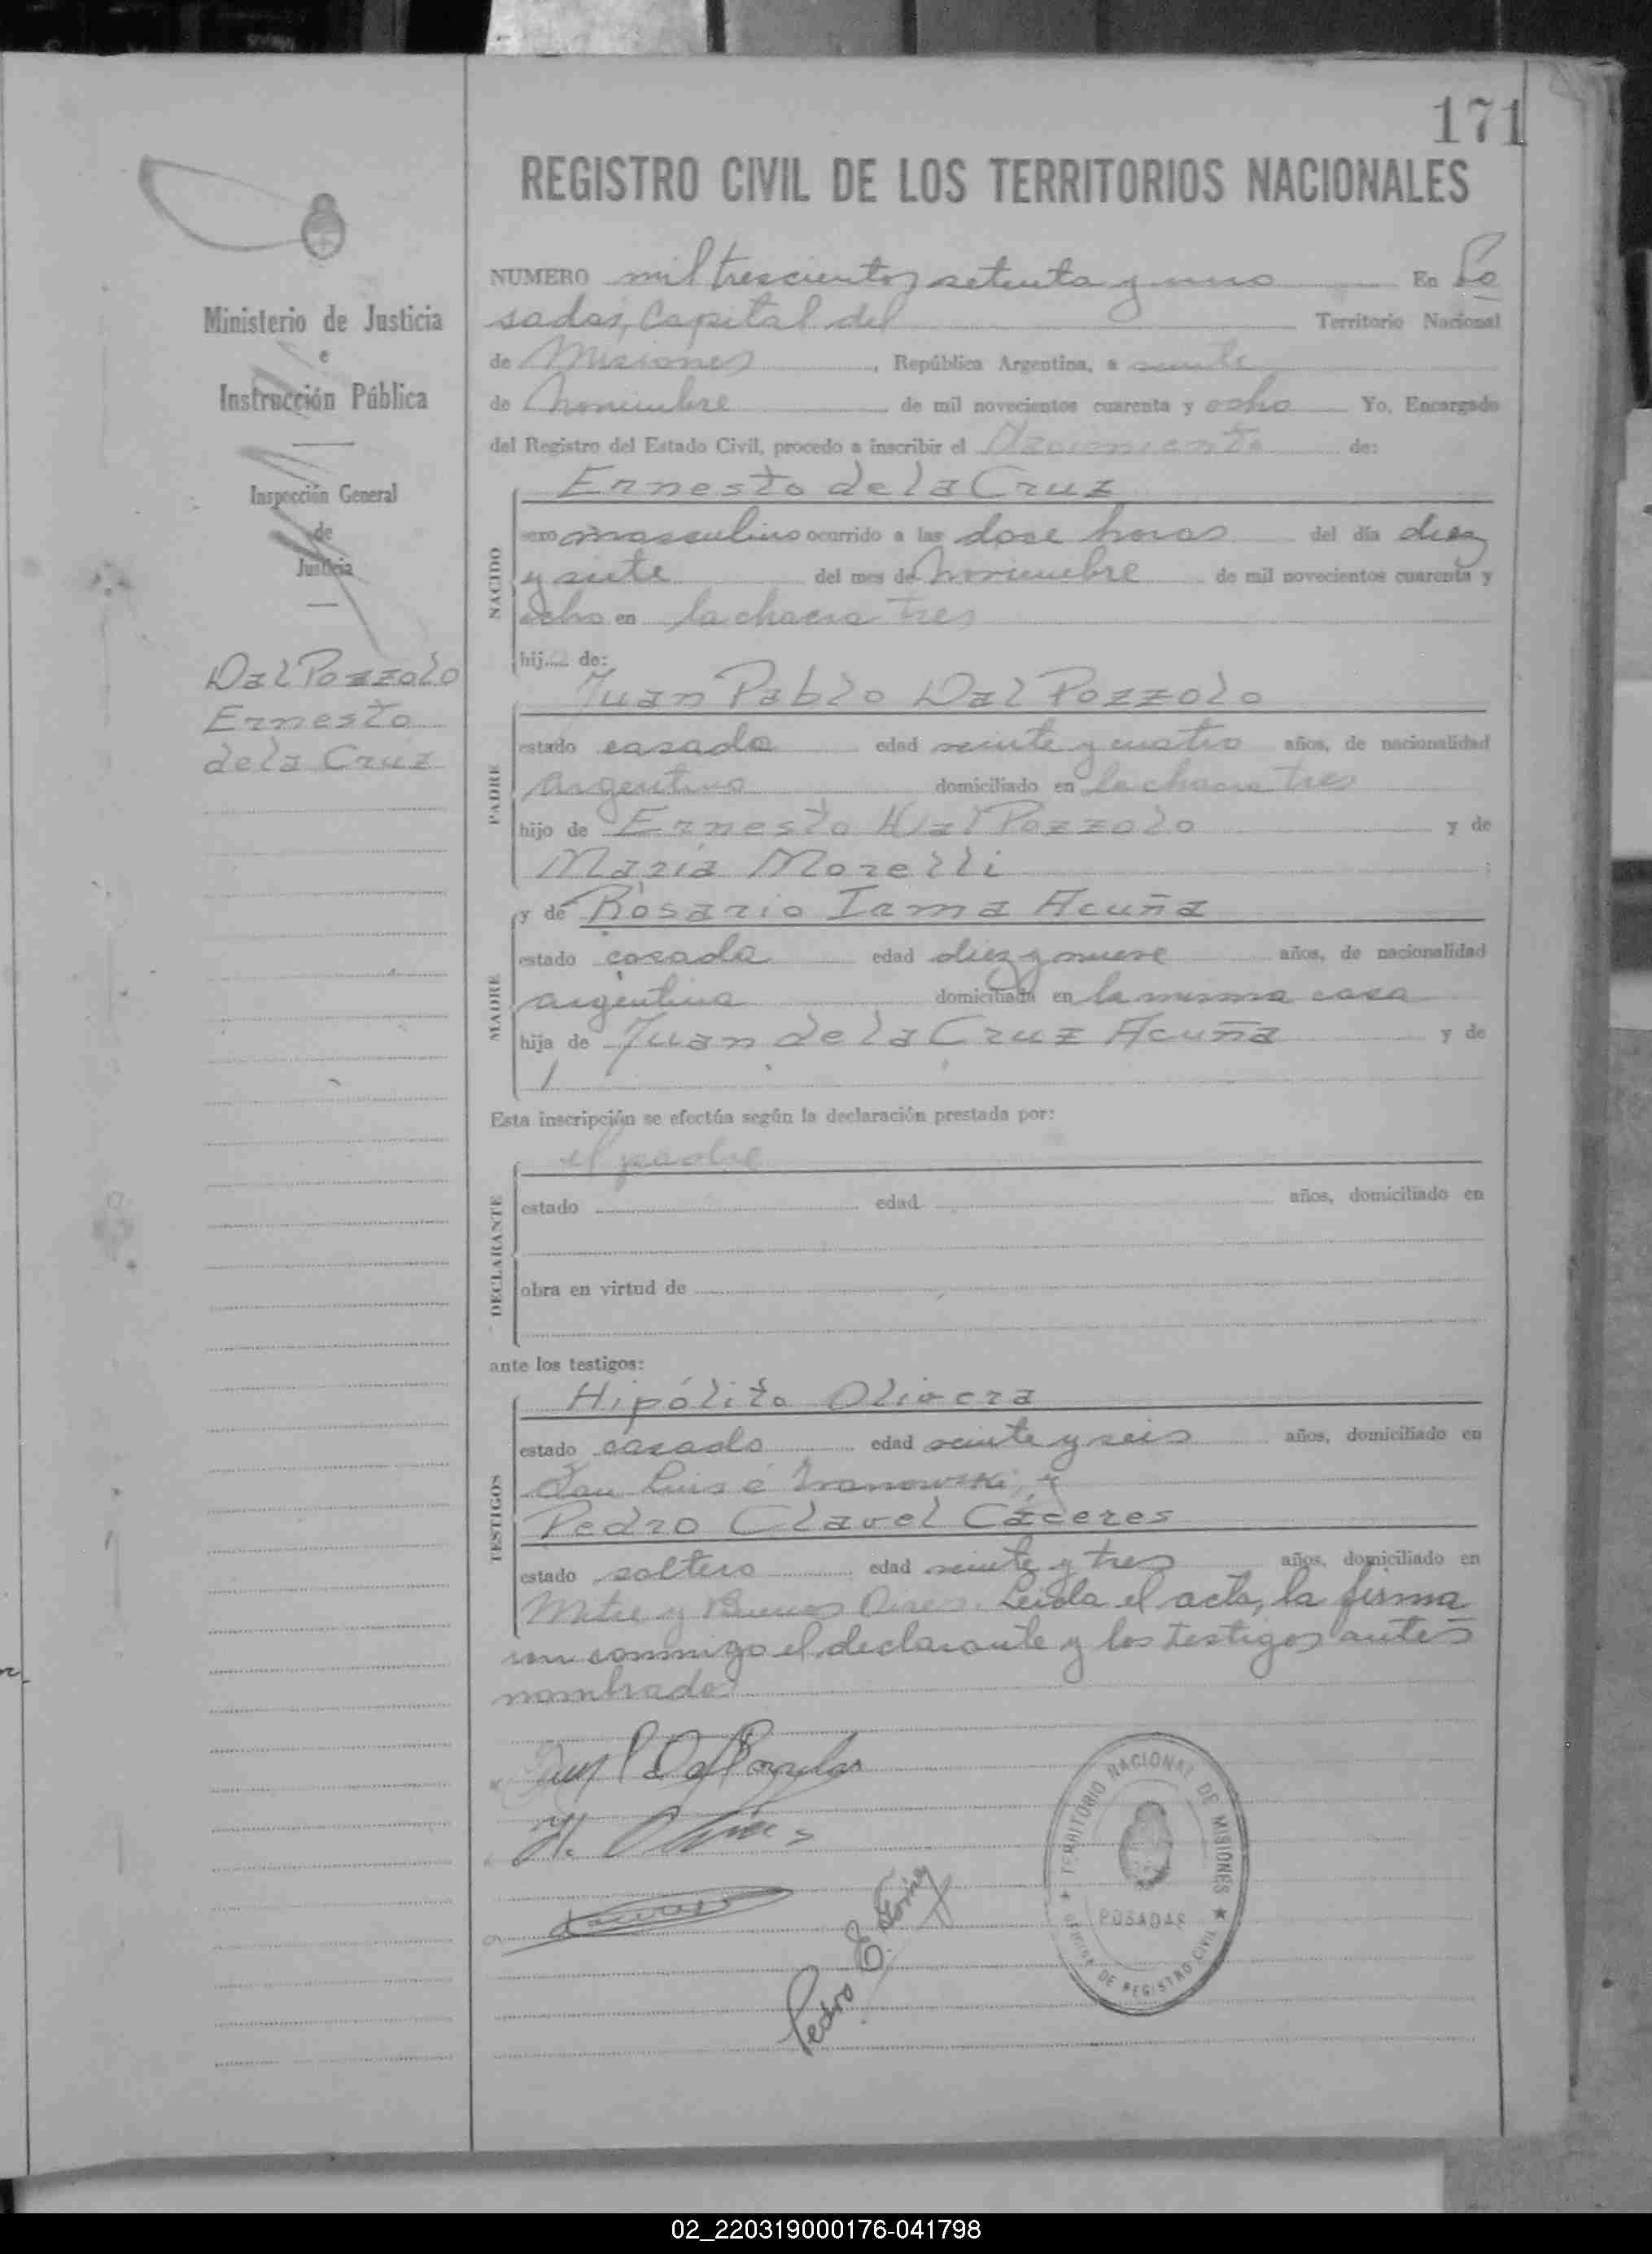 171
REGISTRO CIVIL DE LOS TERRITORIOS NACIONALES
Ministerio de Justicia
e
Instrucción Pública
Inspección General
de
Justicia
Dal Pozzolo
Ernesto
de la Cruz
NUMERO mil trescientos setenta y uno En Po
sadas, Capital del Territorio Nacional
de Misiones, República Argentina, a veinte
de Noviembre de mil novecientos cuarenta y ocho Yo, Encargado
del Registro del Estado Civil, procedo a inscribir el Nacimiento de:
NACIDO
Ernesto de la Cruz
sexo masculino ocurrido a las dose horas del día diez
y siete del mes de Noviembre de mil novecientos cuarenta y
ocho en la chacra tres
hij..... de:
PADRE
Juan Pablo Dal Pozzolo
estado casado edad veinte y cuatro años, de nacionalidad
argentino domiciliado en la chacra tres
hijo de Ernesto Dal Pozzolo y de
María Morelli ;
MADRE
y de Rosario Irma Acuña
estado casada edad diez y nueve años, de nacionalidad
argentina domiciliada en la misma casa
hija de Juan de la Cruz Acuña y de
Esta inscripción se efectúa según la declaración prestada por:
DECLARANTE
el padre
estado edad años, domiciliado en
obra en virtud de
ante los testigos:
TESTIGOS
Hipólito Olivera
estado casado edad veinte y seis años, domiciliado en
San Luis é Ivanowski, y
Pedro Clavel Cáceres
estado soltero edad veinte y tres años, domiciliado en
Mitre y Buenos Aires. Leida el acta, la firma
ron conmigo el declarante y los testigos antes
nombrados
H. Olivera
Pedro E.
TERRITORIO NACIONAL DE MISIONES
POSADAS
OFICINA DE REGISTRO CIVIL
02_220319000176-041798